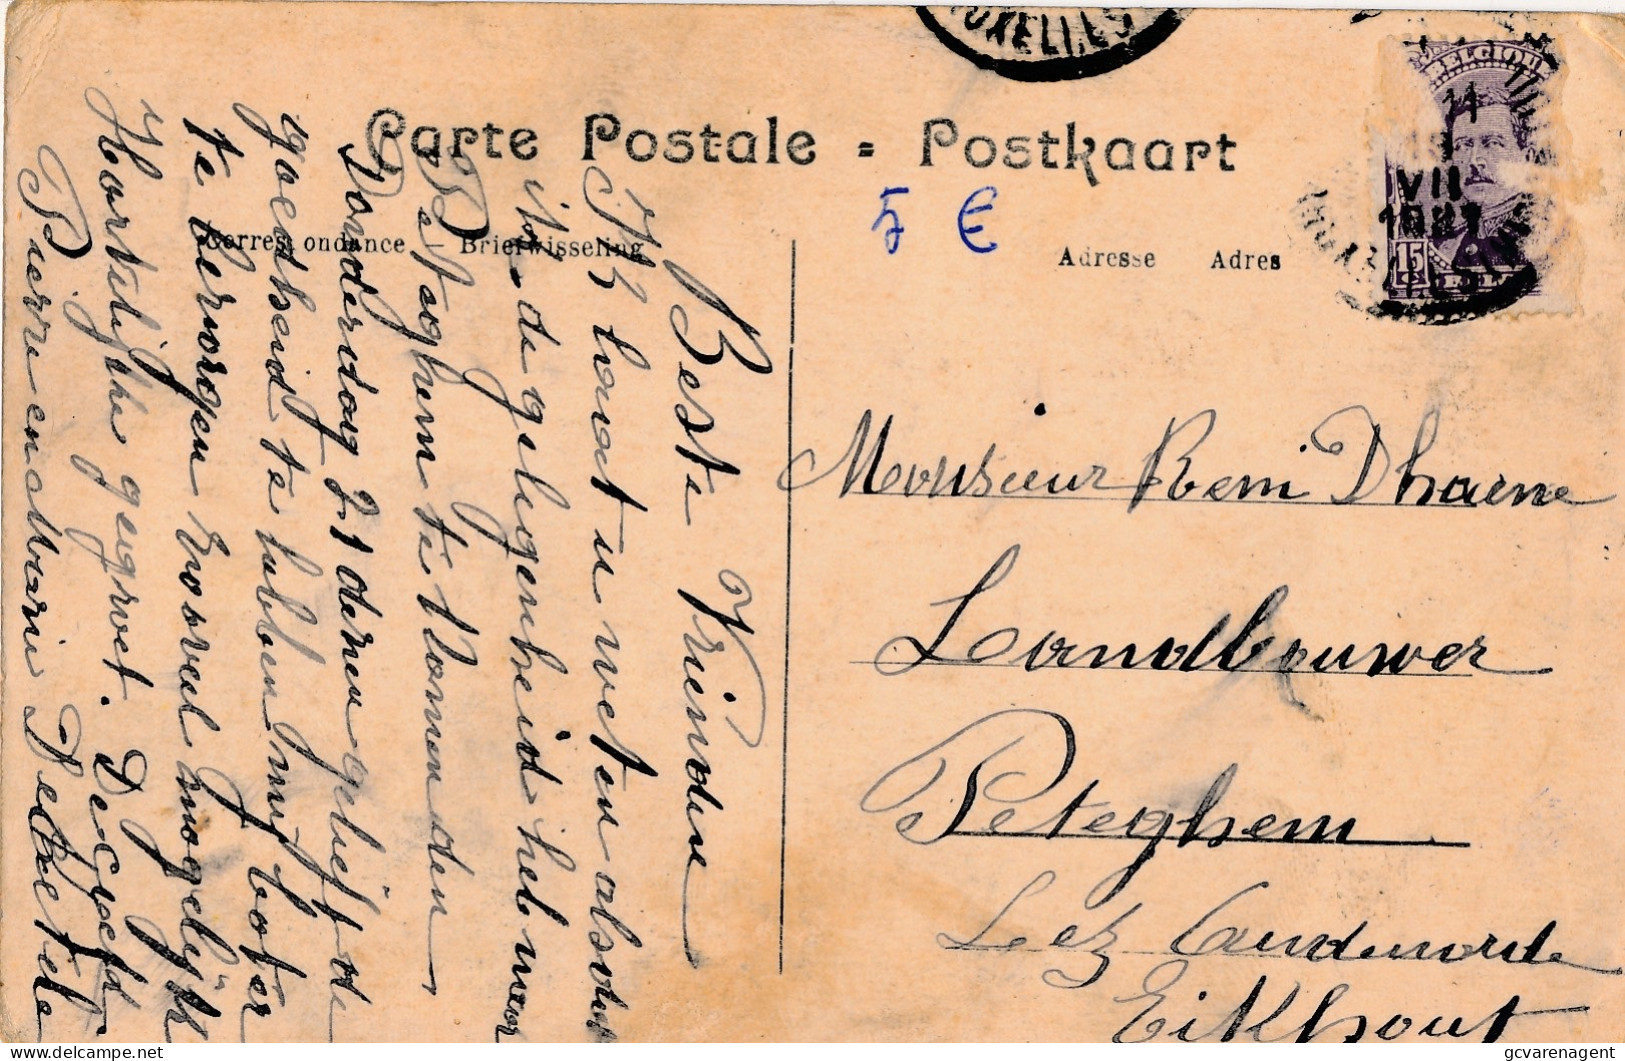 BRUXELLES
BELGIQUE
11
VII
15
Carte Postale = Postkaart
5 €
Correspondance – Briefwisseling
Adresse Adres
Beste Vrienden
Ik laat u weten alsdat
ik de gelegenheid heb naar
Peteghem te komen den
Donderdag 21 dezer gelief de
goedheid te hebben mij boter
te bezorgen zooveel mogelijk
Hartelijke gegroet.
Pierre en Marie
Monsieur Remi Dhaene
Landbouwer
Peteghem
Lez Audenarde
Eikhout
gcvarenagent